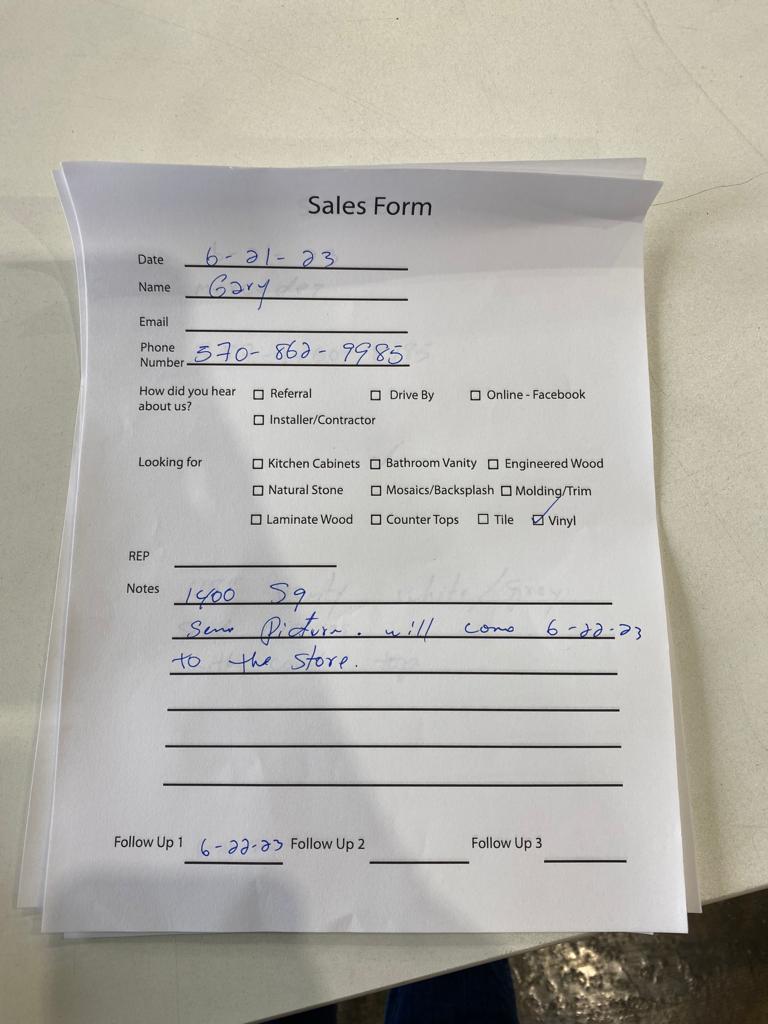 Sales Form
Date 6-21-23
Name Gary
Email
Phone
Number 570-862-9985
How did you hear
about us?
☐ Referral ☐ Drive By ☐ Online - Facebook
☐ Installer/Contractor
Looking for ☐ Kitchen Cabinets ☐ Bathroom Vanity ☐ Engineered Wood
☐ Natural Stone ☐ Mosaics/Backsplash ☐ Molding/Trim
☐ Laminate Wood ☐ Counter Tops ☐ Tile ☑ Vinyl
REP
Notes 1400 Sq
Picture. will 6-22-23
to the store.
Follow Up 1 6-22-23 Follow Up 2 Follow Up 3